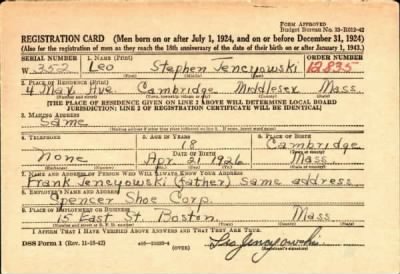 FORM APPROVED
Budget Bureau No. 33-R012-42
REGISTRATION CARD (Men born on or after July 1, 1924, and on or before December 31, 1924)
(Also for the registration of men as they reach the 18th anniversary of the date of their birth on or after January 1, 1943.)
SERIAL NUMBER 1. NAME (Print) ORDER NUMBER
W 352 Leo Stephen Jencyowski 12835
2. PLACE OF RESIDENCE (Print)
4 May Ave. Cambridge Middlesex Mass.
[THE PLACE OF RESIDENCE GIVEN ON LINE 2 ABOVE WILL DETERMINE LOCAL BOARD
JURISDICTION; LINE 2 OF REGISTRATION CERTIFICATE WILL BE IDENTICAL]
3. MAILING ADDRESS
Same
4. TELEPHONE 5. AGE IN YEARS 6. PLACE OF BIRTH
18 Cambridge
DATE OF BIRTH
None Apr. 21 1926 Mass.
7. NAME AND ADDRESS OF PERSON WHO WILL ALWAYS KNOW YOUR ADDRESS
Frank Jencyowski (father) Same address
8. EMPLOYER'S NAME AND ADDRESS
Spencer Shoe Corp.
9. PLACE OF EMPLOYMENT OR BUSINESS
15 East St. Boston, Mass.
I AFFIRM THAT I HAVE VERIFIED ABOVE ANSWERS AND THAT THEY ARE TRUE.
DSS Form 1 (Rev. 11-16-42) (OVER) Leo Jencyowski
(Registrant's signature)